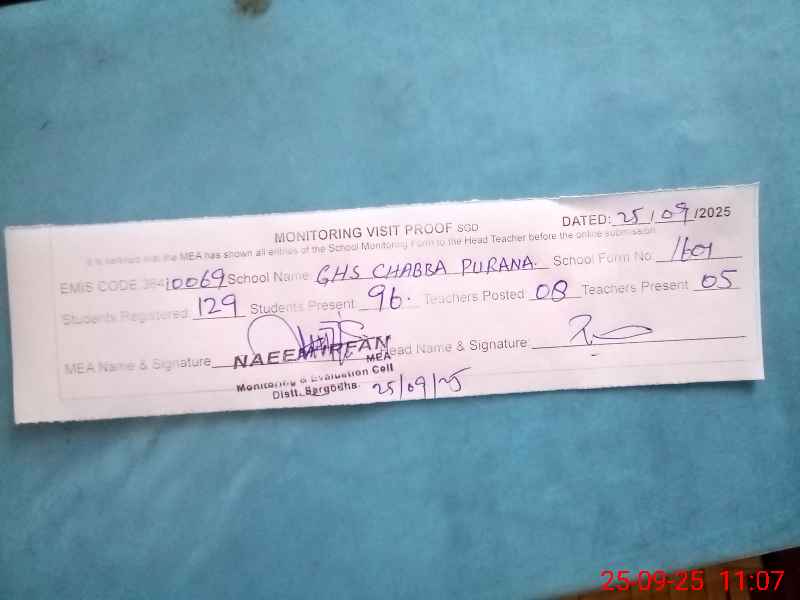 MONITORING VISIT PROOF SGD
DATED: 25/09/2025
It is certified that the MEA has shown all entries of the School Monitoring Form to the Head Teacher before the online submission.
EMIS CODE 38410069 School Name: GHS CHABBA PURANA. School Form No: 1601
Students Registered: 129 Students Present: 96. Teachers Posted 08 Teachers Present 05
MEA Name & Signature Head Name & Signature:
NAEEM IRFAN
MEA
Monitoring & Evaluation Cell
Distt. Sargodha
25/09/25
25-09-25 11:07